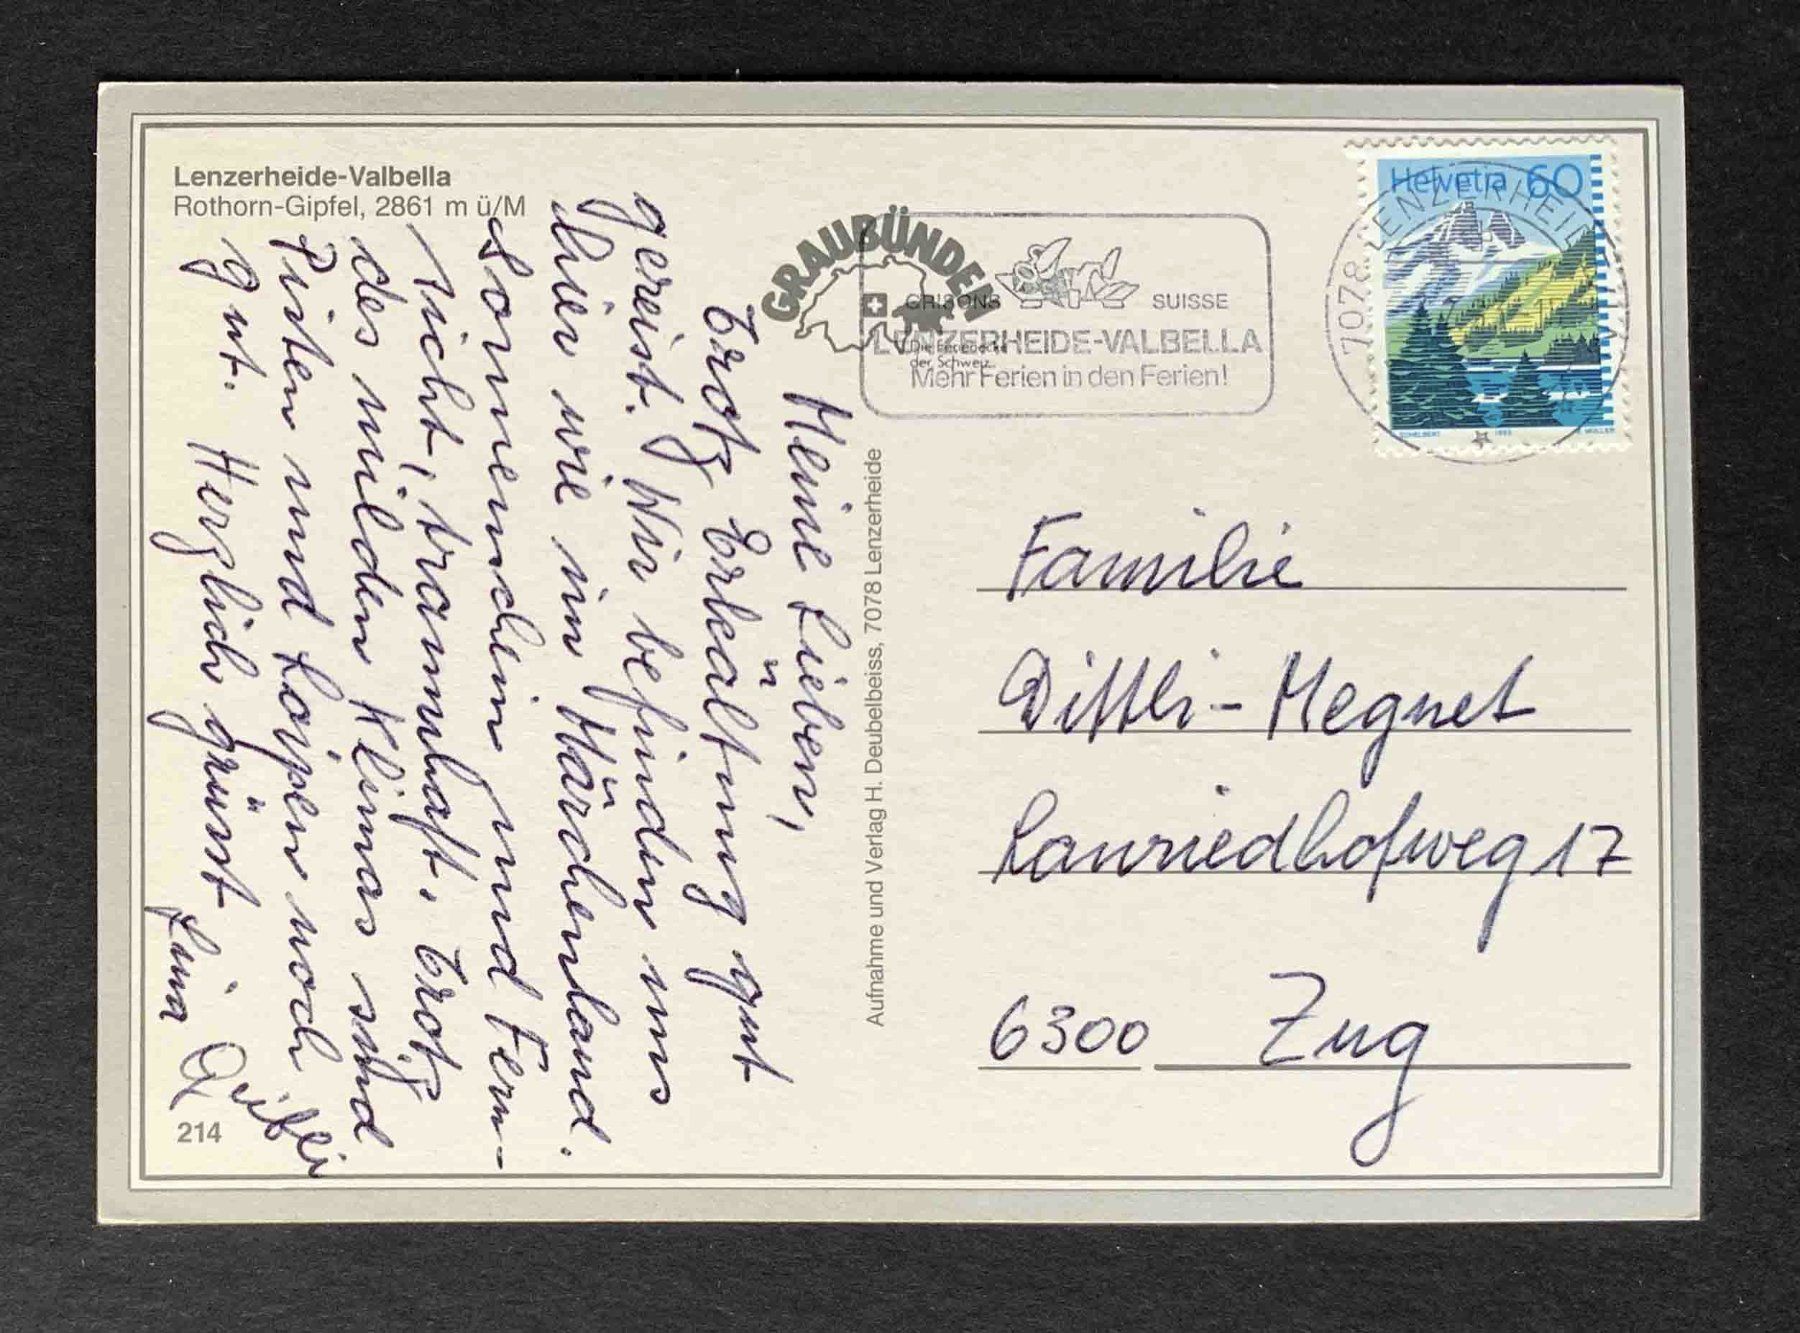 Lenzerheide-Valbella
Rothorn-Gipfel, 2861 m ü/M
Meine Lieben,
trotz Erkältung gut
gereist. Wir befinden uns
hier wie im Märchenland.
Sonnenschein und Fern-
sicht, traumhaft. Trotz
des milden Klimas sind
Pisten und Loipen noch
gut. Herzlich grüsst
Lina
214
Aufnahme und Verlag H. Deubelbeiss, 7078 Lenzerheide
GRAUBÜNDEN
Die Ferienecke
der Schweiz
GRISONS SUISSE
LENZERHEIDE-VALBELLA
Mehr Ferien in den Ferien!
Helvetia 60
7078 LENZERHEIDE
1993
Familie
Dittli-Megnet
Lauriedhofweg 17
6300 Zug